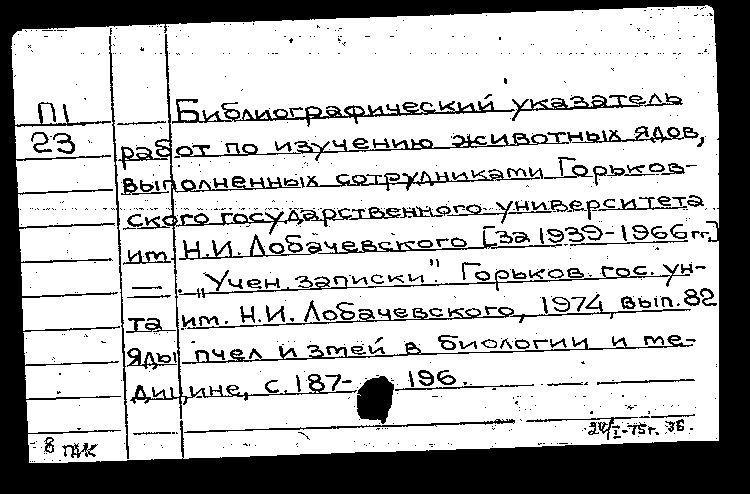 П1 Библиографический указатель
23 работ по изучению животных ядов,
выполненных сотрудниками Горьков-
ского государственного университета
им. Н.И. Лобачевского [за 1939-1966 гг.]
— . „Учен. записки". Горьков. гос. ун-
та им. Н.И. Лобачевского, 1974, вып. 82
Яды пчел и змей в биологии и ме-
дицине, с. 187- 196.
8 ПАК